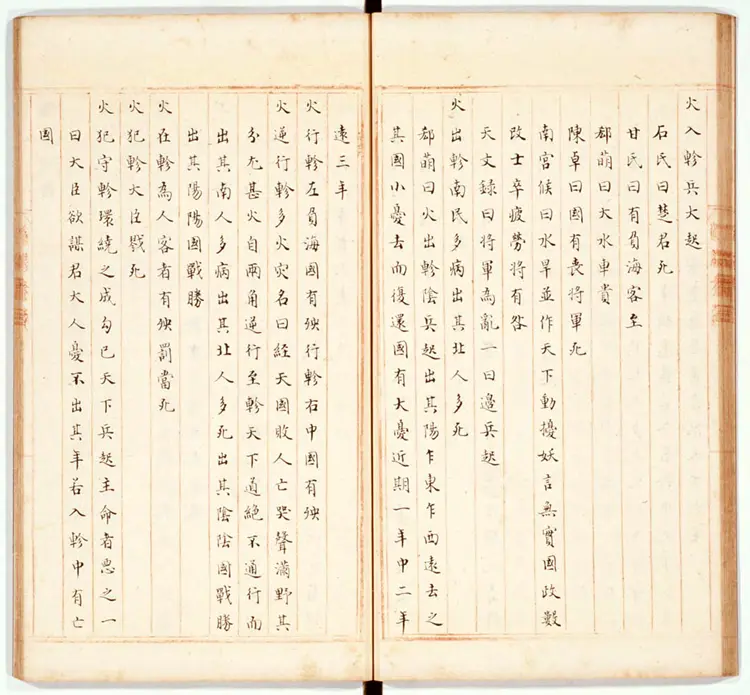 火入軫兵大起
石氏曰楚君死
甘氏曰有負海客至
郄萌曰大水車貴
陳卓曰國有喪將軍死
南宮候曰水旱並作天下動擾妖言無實國政數
改士卒疲勞將有咎
天文錄曰將軍為亂一曰邊兵起
火出軫南民多病出其北人多死
郄萌曰火出軫陰兵起出其陽乍東乍西遠去之
其國小憂去而復還國有大憂近期一年中二年
遠三年
火行軫左負海國有殃行軫右中國有殃
火逆行軫多火灾名曰經天國敗人亡哭聲滿野其
分尤甚火自兩角逆行至軫天下道絕不通行而
出其南人多病出其北人多死出其陰陰國戰勝
出其陽陽國戰勝
火在軫為人客者有殃罰當死
火犯軫大臣戮死
火犯守軫環繞之成勾已天下兵起主命者惡之一
曰大臣欲謀君大人憂不出其年若入軫中有亡
國